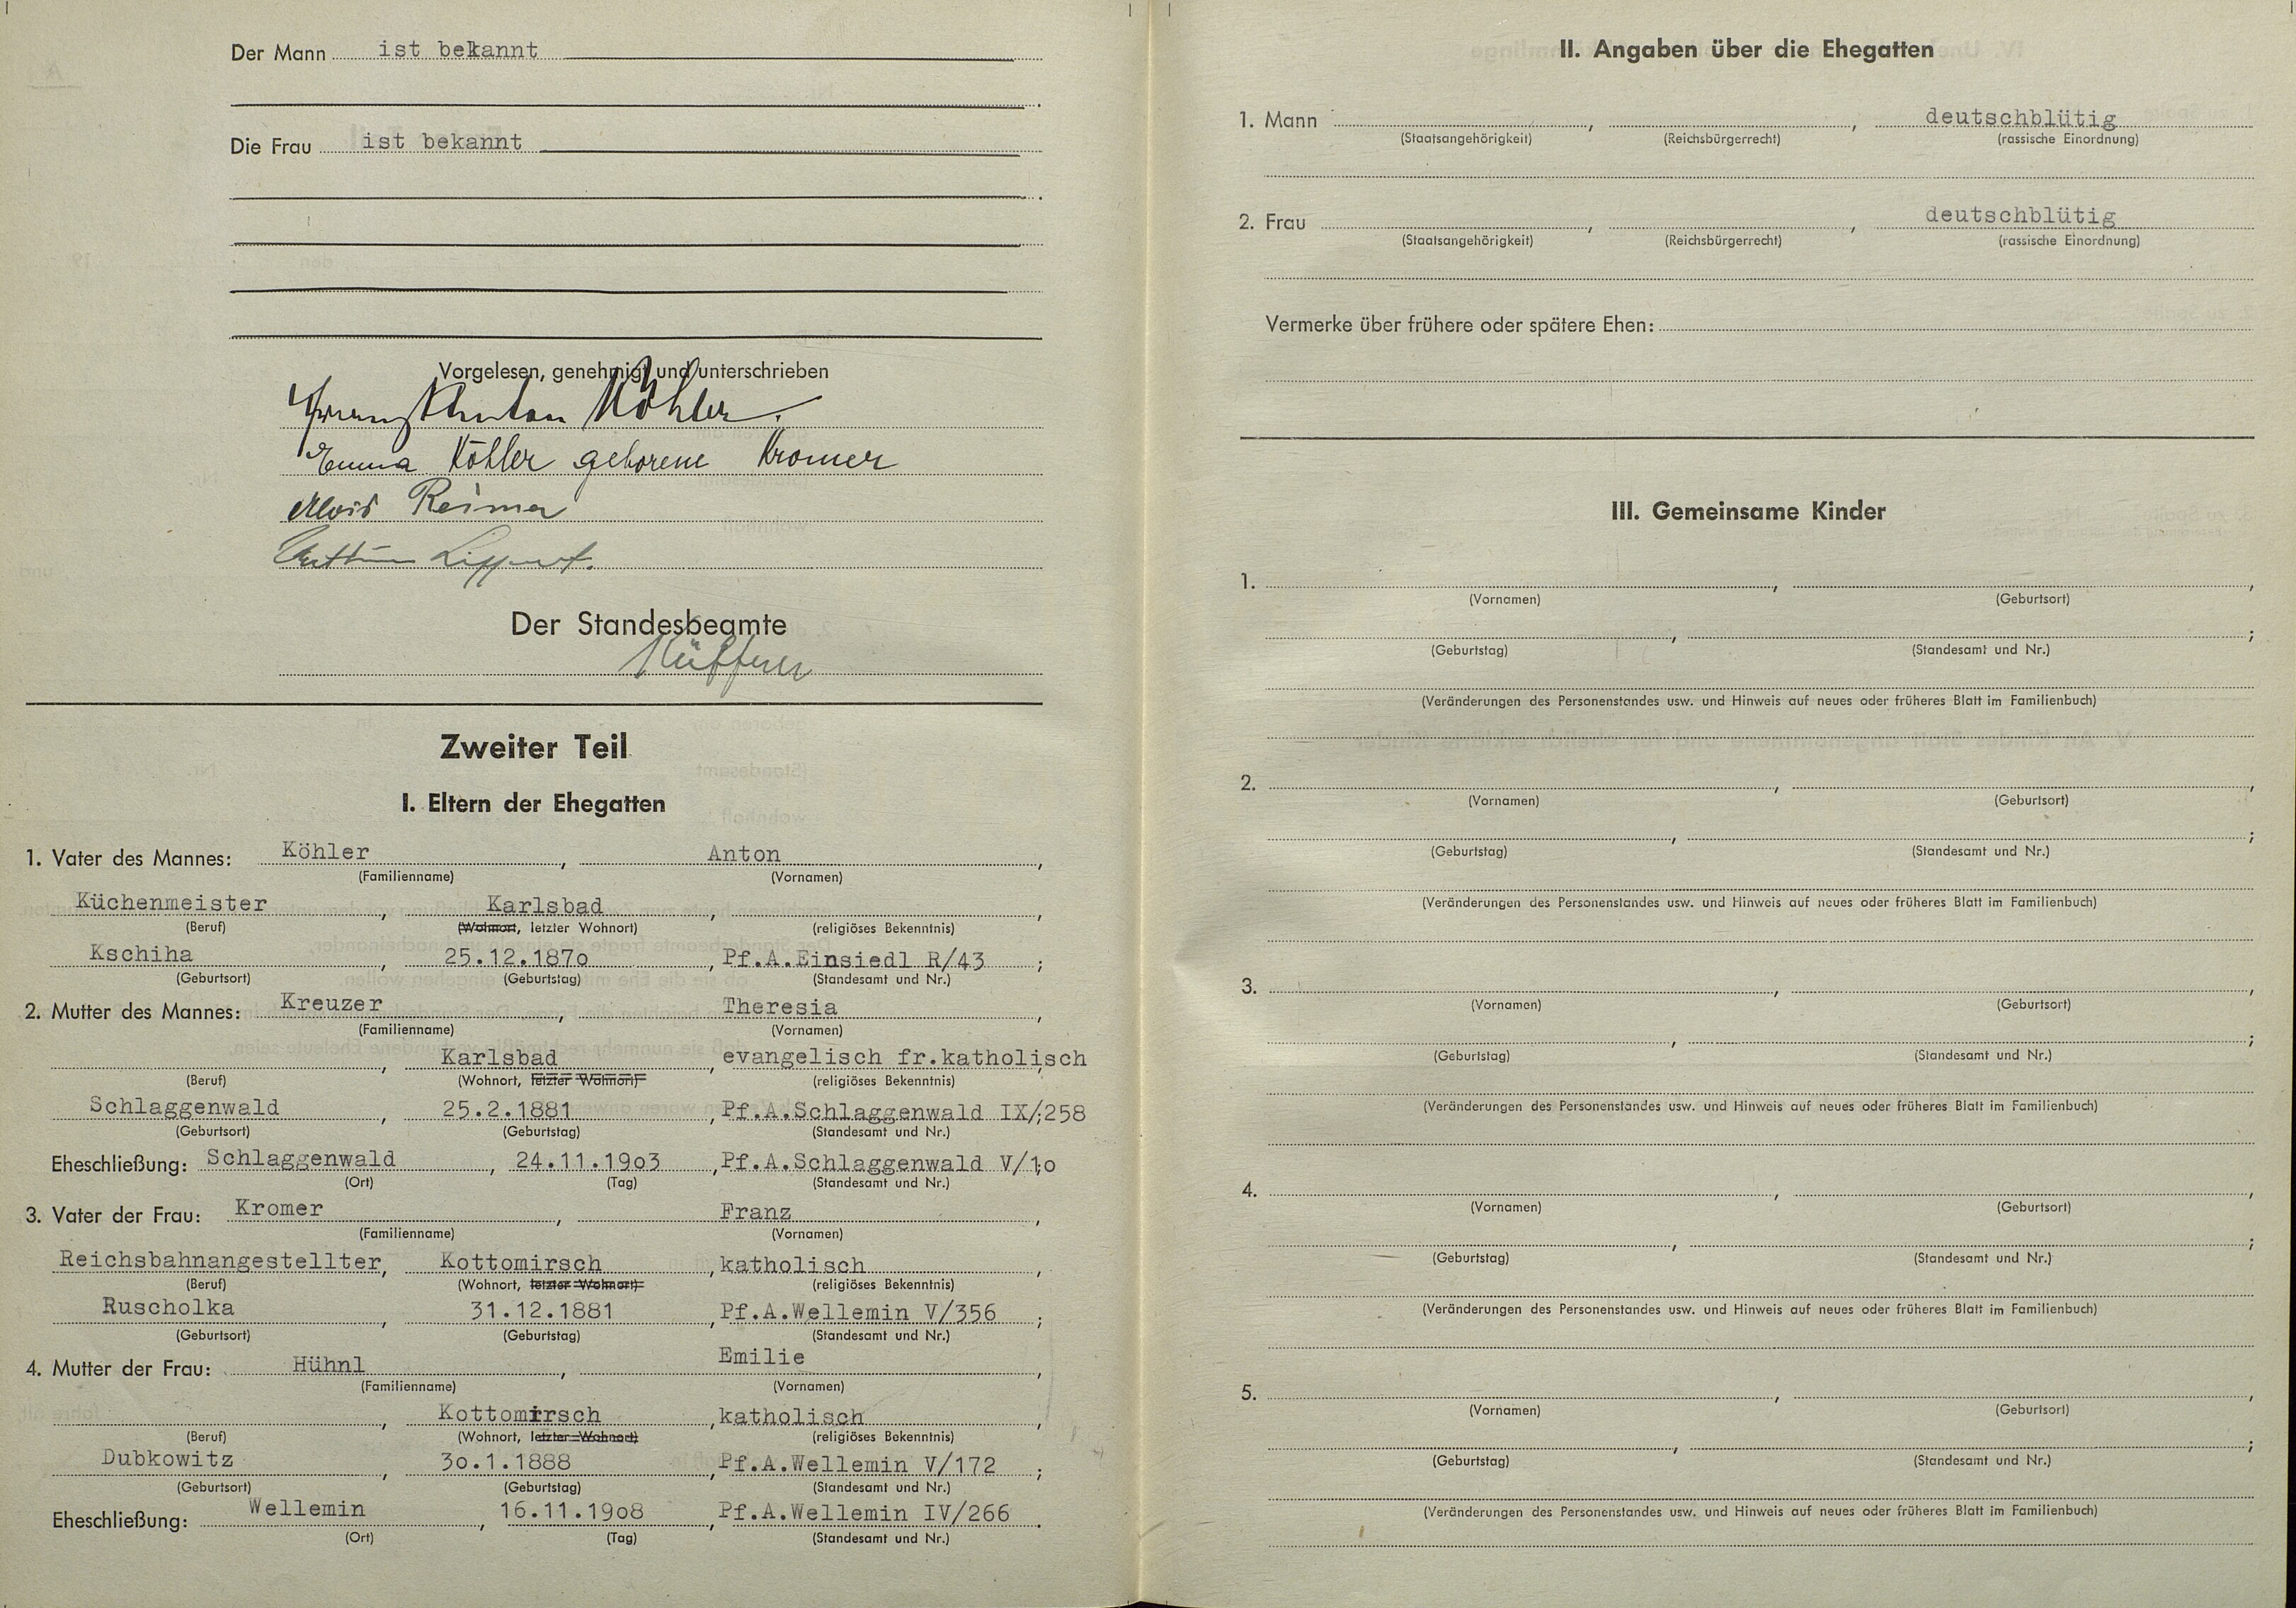 Der Mann ist bekannt
Die Frau ist bekannt
Vorgelesen, genehmigt und unterschrieben
Franz Anton Köhler.
Emma Köhler geborene Kromer
Alois Reimer
Arthur Lippert.
Der Standesbeamte
Küffner
Zweiter Teil
I. Eltern der Ehegatten
1. Vater des Mannes: Köhler, Anton,
(Familienname) (Vornamen)
Küchenmeister, Karlsbad, ,
(Beruf) (Wohnort, letzter Wohnort) (religiöses Bekenntnis)
Kschiha, 25.12.187o, Pf.A.Einsiedl R/43 ;
(Geburtsort) (Geburtstag) (Standesamt und Nr.)
2. Mutter des Mannes: Kreuzer, Theresia,
(Familienname) (Vornamen)
, Karlsbad, evangelisch fr.katholisch,
(Beruf) (Wohnort, letzter Wohnort) (religiöses Bekenntnis)
Schlaggenwald, 25.2.1881, Pf.A.Schlaggenwald IX/258;
(Geburtsort) (Geburtstag) (Standesamt und Nr.)
Eheschließung: Schlaggenwald, 24.11.19o3, Pf.A.Schlaggenwald V/1o;
(Ort) (Tag) (Standesamt und Nr.)
3. Vater der Frau: Kromer, Franz,
(Familienname) (Vornamen)
Reichsbahnangestellter, Kottomirsch, katholisch,
(Beruf) (Wohnort, letzter Wohnort) (religiöses Bekenntnis)
Ruscholka, 31.12.1881, Pf.A.Wellemin V/356 ;
(Geburtsort) (Geburtstag) (Standesamt und Nr.)
4. Mutter der Frau: Hühnl, Emilie,
(Familienname) (Vornamen)
, Kottomirsch, katholisch,
(Beruf) (Wohnort, letzter Wohnort) (religiöses Bekenntnis)
Dubkowitz, 3o.1.1888, Pf.A.Wellemin V/172 ;
(Geburtsort) (Geburtstag) (Standesamt und Nr.)
Eheschließung: Wellemin, 16.11.19o8, Pf.A.Wellemin IV/266.
(Ort) (Tag) (Standesamt und Nr.)
II. Angaben über die Ehegatten
1. Mann , , deutschblütig
(Staatsangehörigkeit) (Reichsbürgerrecht) (rassische Einordnung)
2. Frau , , deutschblütig
(Staatsangehörigkeit) (Reichsbürgerrecht) (rassische Einordnung)
Vermerke über frühere oder spätere Ehen:
III. Gemeinsame Kinder
1. , ,
(Vornamen) (Geburtsort)
, ;
(Geburtstag) (Standesamt und Nr.)
(Veränderungen des Personenstandes usw. und Hinweis auf neues oder früheres Blatt im Familienbuch)
2. , ,
(Vornamen) (Geburtsort)
, ;
(Geburtstag) (Standesamt und Nr.)
(Veränderungen des Personenstandes usw. und Hinweis auf neues oder früheres Blatt im Familienbuch)
3. , ,
(Vornamen) (Geburtsort)
, ;
(Geburtstag) (Standesamt und Nr.)
(Veränderungen des Personenstandes usw. und Hinweis auf neues oder früheres Blatt im Familienbuch)
4. , ,
(Vornamen) (Geburtsort)
, ;
(Geburtstag) (Standesamt und Nr.)
(Veränderungen des Personenstandes usw. und Hinweis auf neues oder früheres Blatt im Familienbuch)
5. , ,
(Vornamen) (Geburtsort)
, ;
(Geburtstag) (Standesamt und Nr.)
(Veränderungen des Personenstandes usw. und Hinweis auf neues oder früheres Blatt im Familienbuch)